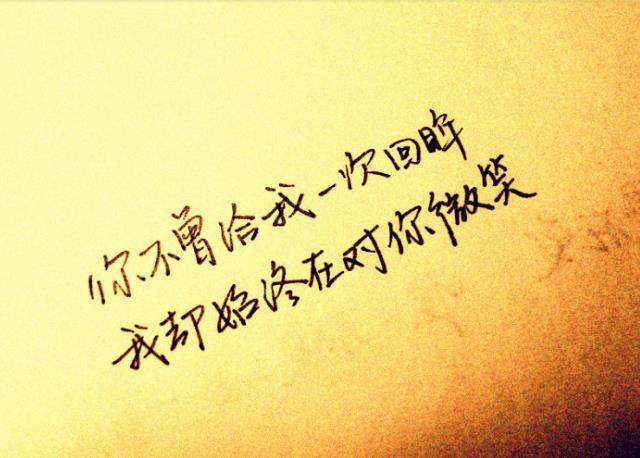 你不曾给我一次回眸
我却始终在对你微笑